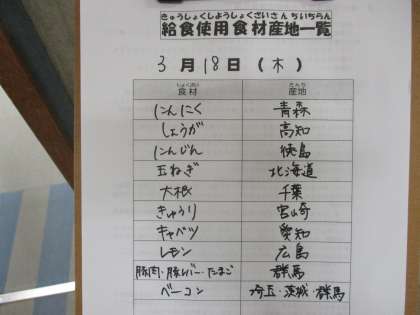 きゅうしょくしようしょくざいさんちいちらん
給食使用食材産地一覧
3月18日(木)
しょくざい さんち
食材 産地
にんにく 青森
しょうが 高知
にんじん 徳島
玉ねぎ 北海道
大根 千葉
きゅうり 宮崎
キャベツ 愛知
レモン 広島
豚肉・豚レバー・たまご 群馬
ベーコン 埼玉・茨城・群馬